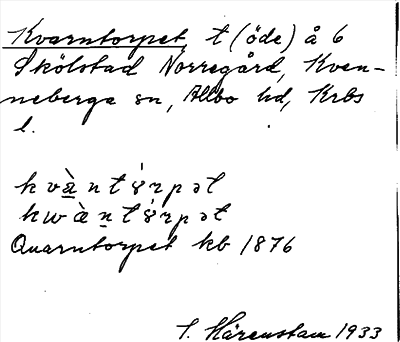 Kvarntorpet, t (öde) å 6
Skölstad Norregård, Kven-
neberga sn, Allbo hd, Krbs
l.
kvàntórpət
kwàntórpət
Quarntorpet kb 1876
S. Härenstam 1933